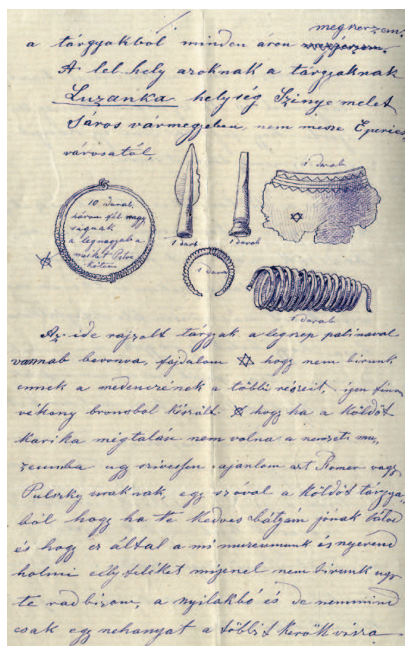 megszerzem.
a tárgyakból minden áron
A lel hely azoknak a tárgyaknak
Luzanka helység Szinye melet
Sáros vármegyében, nem messze Eperies,
városától,
10 darab,
három féle nagy
ságnak
a legnagyobb a
melyiket
1 darab
1 darab
1 darab
1 darab
1 darab
Az ide rajzolt tárgyak a legszep patinaval
vannab bevonva, fajdalom hogy nem birunk
ennek a medenczének a többi részeit, igen finom
vékony bronsbol készült hogy ha a köldöt
karika megtalási nem volna a nemzeti mu,
zeumba ugy szivessen ajánlom azt Romer vagy
Pulszky uraknak, egy szóval a köldöt tárgya,
ból hogy ha te kedves bátyám jónak látod
és hogy ez által a mi muzeumunk is nyerend
holmi féléket mijenel nem birunk ugy
te rad bizom, a nyilakbó és de nemmind
csak egy nehanyat a többit kerök vissza